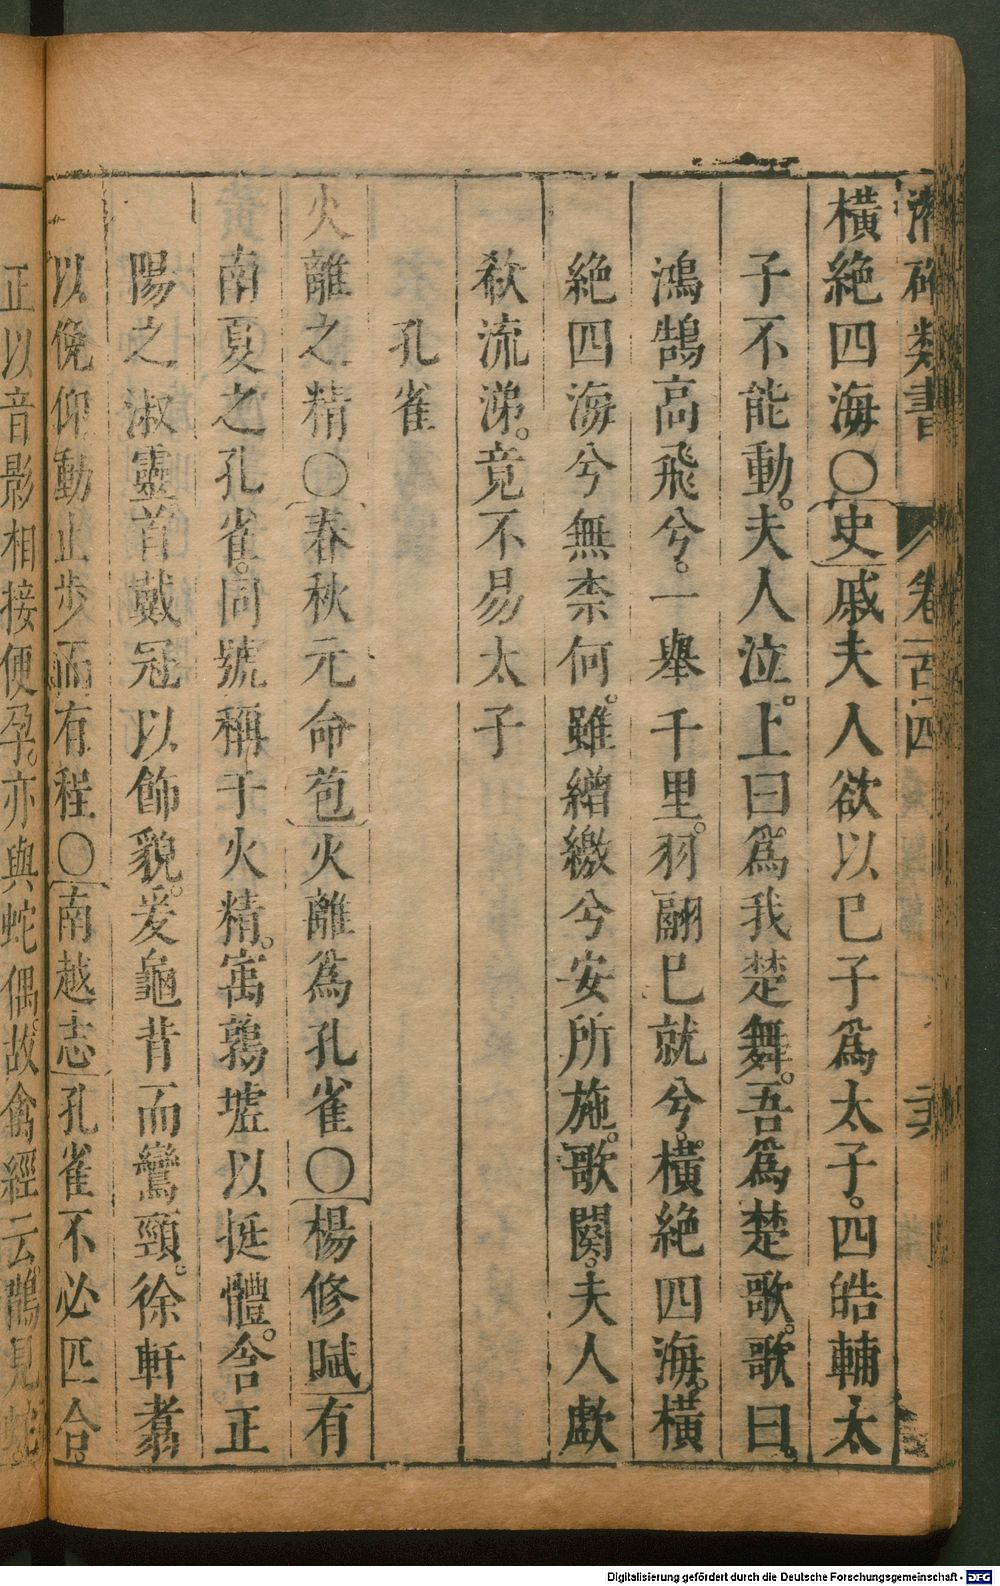 潛確類書 卷一百四
橫絶四海○史戚夫人欲以巳子爲太子。四皓輔太
子不能動。夫人泣。上曰爲我楚舞。吾爲楚歌。歌曰。
鴻鵠高飛兮。一舉千里。羽翮巳就兮。橫絶四海。橫
絶四海兮無柰何。雖繒繳兮安所施。歌闋。夫人歔
欷流涕。竟不易太子
孔雀
火離之精○春秋元命苞火離爲孔雀○楊修賦有
南夏之孔雀。同號稱于火精。寓鶉墟以挺體。含正
陽之淑靈。首戴冠以飾貌。爰龜背而鸞頸。徐軒翥
以俛仰動止步而有程○南越志孔雀不必匹合。
正以音影相接便孕。亦與蛇偶。故禽經云。鵲見蛇
Digitalisierung gefördert durch die Deutsche Forschungsgemeinschaft - DFG